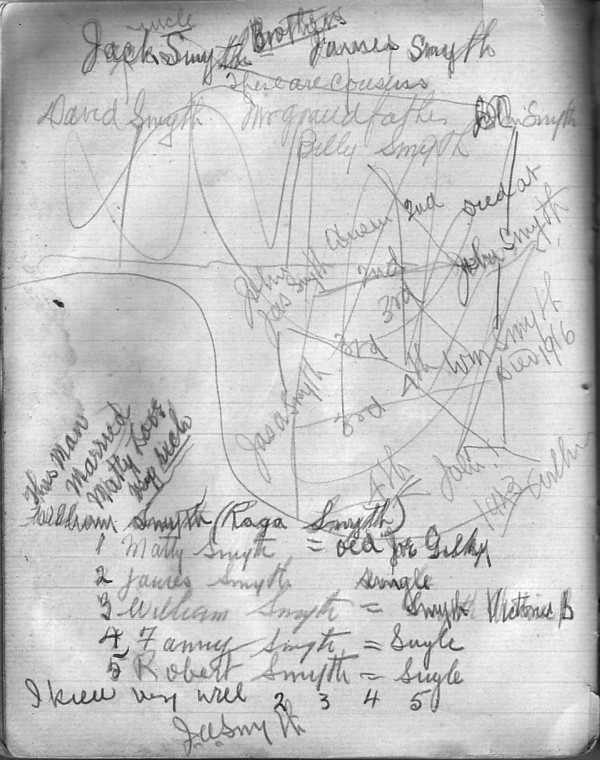 uncle
Jack Smyth Brothers James Smyth
There are cousins
David Smyth My grandfather John Smyth
Billy Smyth
2nd died at
John
Jas Smyth 2nd John Smyth
3rd
3rd 4th Wm Smyth
Died 1916
Jas a Smyth 3rd
4th John
This Man
Married
Matty
William Smyth (Raga Smyth)
1 Matty Smyth = old Joe
2 James Smyth single
3 William Smyth = Smyth Victoria B
4, Fanny Smyth = Single
5 Robert Smyth = Single
I knew very well 2 3 4 5
JaSmyth